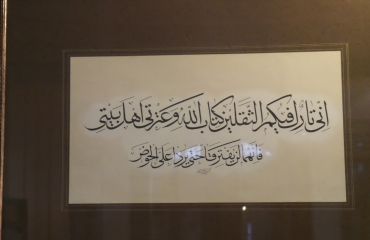 انی تارك فیکم الثقلین کتاب الله وعترتی اهل بیتی
فانهما لن یفترقا حتی یردا علی الحوض